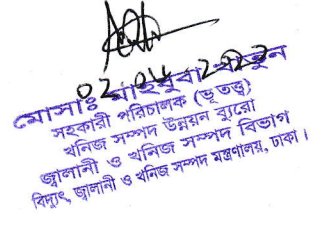 ০২ ০৮ ২০২৩
মোসাঃ মাহবুবা খাতুন
সহকারী পরিচালক (ভূতত্ত্ব)
খনিজ সম্পদ উন্নয়ন ব্যুরো
জ্বালানী ও খনিজ সম্পদ বিভাগ
বিদ্যুৎ, জ্বালানী ও খনিজ সম্পদ মন্ত্রণালয়, ঢাকা।